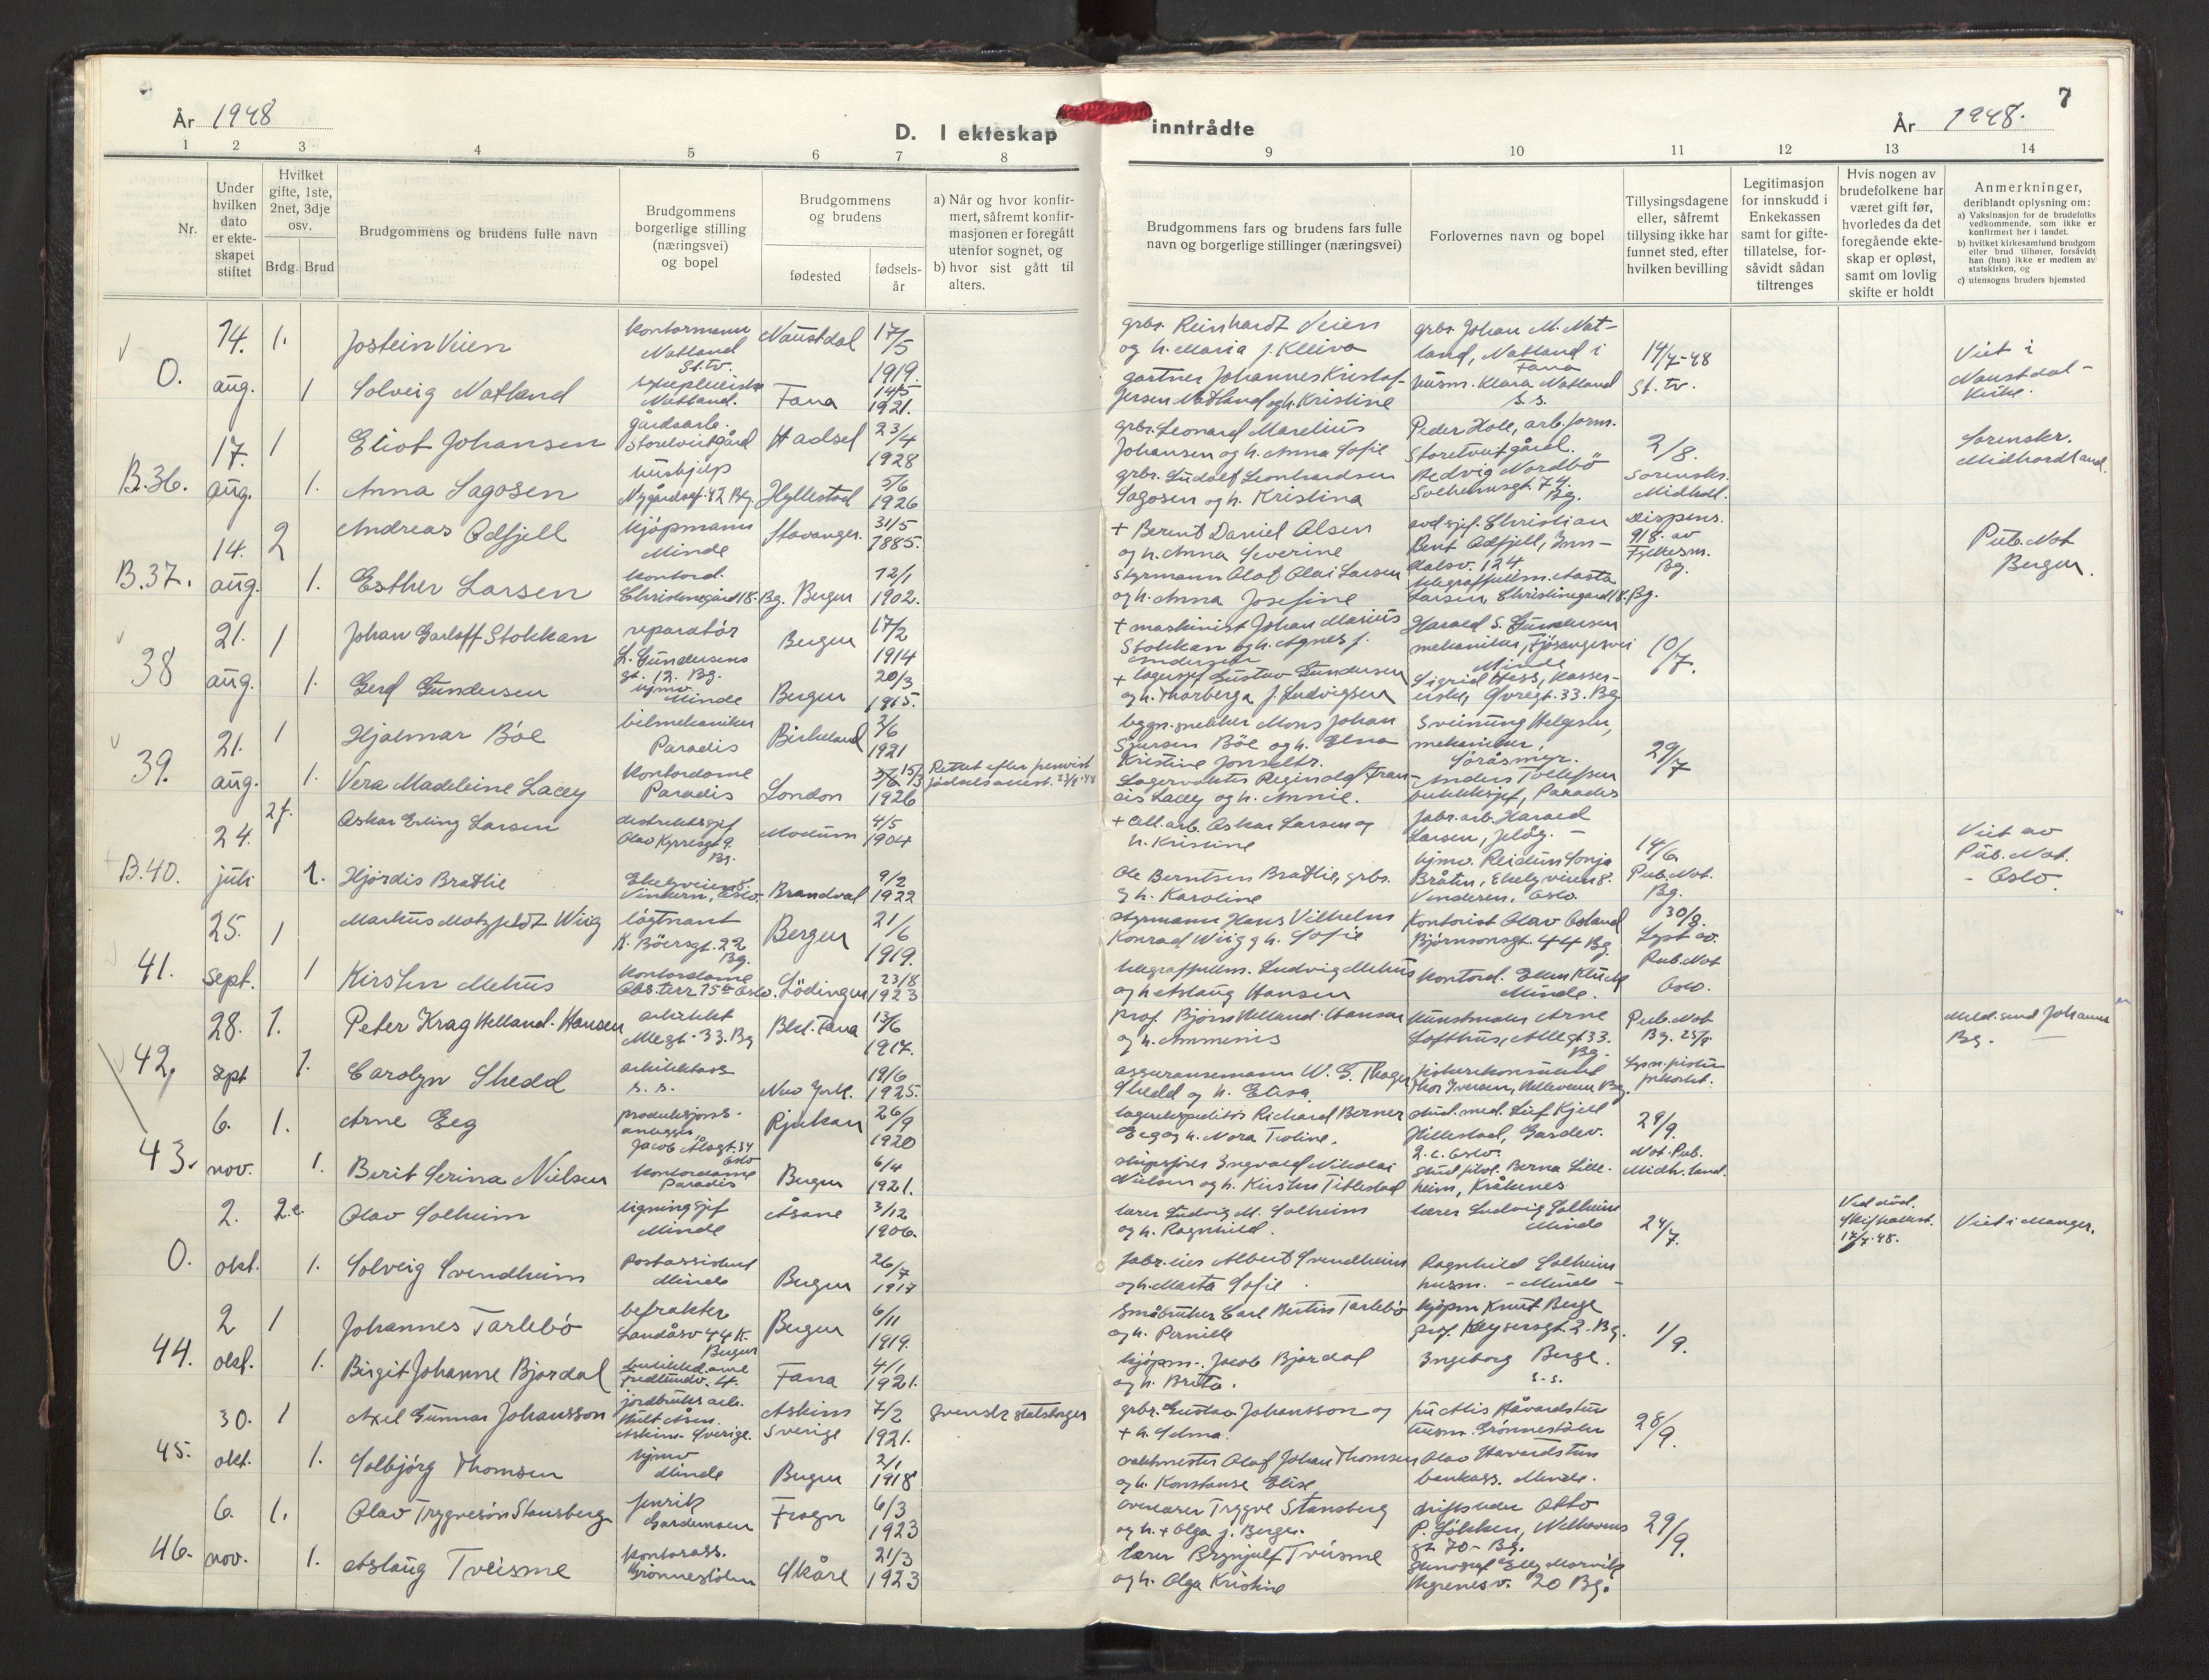 7
År 1948
D. I ekteskap inntrådte
År 1948.
1 2 3 4 5 6 7 8 9 10 11 12 13 14
Nr.
Under hvilken dato er ekte-skapet stiftet
Hvilket gifte, 1ste, 2net, 3dje osv.
Brdg. Brud
Brudgommens og brudens fulle navn
Brudgommens borgerlige stilling (næringsvei) og bopel
Brudgommens og brudens
fødested
fødsels-år
a) Når og hvor konfir-mert, såfremt konfir-masjonen er foregått utenfor sognet, og
b) hvor sist gått til alters.
Brudgommens fars og brudens fars fulle navn og borgerlige stillinger (næringsvei)
Forlovernes navn og bopel
Tillysingsdagene eller, såfremt tillysing ikke har funnet sted, efter hvilken bevilling
Legitimasjon for innskudd i Enkekassen samt for gifte-tillatelse, for-såvidt sådan tiltrenges
Hvis nogen av brudefolkene har været gift før, hvorledes da det foregående ekte-skap er opløst, samt om lovlig skifte er holdt
Anmerkninger, deriblandt oplysning om:
a) Vaksinasjon for de brudefolks vedkommende, som ikke er konfirmert her i landet.
b) hvilket kirkesamfund brudgom eller brud tilhører, forsåvidt han (hun) ikke er medlem av statskirken, og
c) utensogns bruders hjemsted
O. 14. aug.
1. Jostein Veien kontormann Natland St.tv. Naustdal 17/5 1919.
1 Solveig Natland Natland. Fana 14/5 1921.
grbr. Reinhardt Veien og h. Maria f. Kleiva
gartner Johannes Kristof-fersen Natland og h. Kristine
grbr. Johan M. Nat-land, Natland i Fana
husm. Klara Natland s.s.
14/7-48 St. tv.
Viet i Naustdal-kirke.
B.36. 17. aug.
1 Eliot Johansen gårdsarb. Storetveitgård Hadsel 23/4 1928
1. Anna Sagosen hushjelp Nygårdsgt. 42 Bg. Hyllestad 5/6 1926
grbr. Leonard Marelius Johansen og h. Anna Sofie
grbr. Ludolf Leonhardsen Sagosen og h. Kristina
Peder Hole, arb.form. Storetveitgård.
Hedvig Nordbö Solheimsgt. 74. Bg.
2/8. Sorenskr. Midhdl.
Sorenskr. Midhordland.
B.37. 14. aug.
2 Andreas Odfjell kjöpmann Minde Stavanger. 31/5 1885.
1. Esther Larsen kontord. Christinegård 18. Bg. Bergen 12/1 1902.
+ Berent Daniel Olsen og h. Anna Severine
Styrmann Olaf Olai Larsen og h. Anna Josefine
avd.sjef. Christian Bent Odfjell, Inn-dalsv. 124
telegraffullm. Aasta Larsen, Christinegård 18. Bg.
Dispens. 9/8. av Fylkesm. Bg.
Pub. Not Bergen.
38 21. aug.
1 Johan Garloff Stokkan reparatör L. Gundersens gt. 12. Bg. Bergen 17/2 1914
1. Gerd Gundersen hjmv. Minde Bergen 20/3 1915.
+ maskinist Johan Marius Stokkan og h. Agnes f. Andersen
+ lagersjef Gustav Gundersen og h. Thorberga f. Ludvigsen
Harald S. Gundersen mekaniker, Fjösangervei Minde
Sigrid Hess, kasser-erske, Øvregt. 33. Bg
10/7.
39. 21. aug.
1 Hjalmar Böe bilmekaniker Paradis Birkeland 2/6 1921
1. Vera Madeleine Lacey Kontordame Paradis London 15/3 1926
Rettet efter fremvist födselsattest.
bygn.snekker Mons Johan Sjursen Böe og h. Elna Kristine Jonsdtr.
Reginald Fran-cis Lacey og h. Annie.
Sveinung Helgesen, mekaniker, Söråsmyr.
Anders Tollefsen butikksjef, Paradis
29/7
B.40. 24. juli
2f. Oskar Erling Larsen distriktssjef Olav Kyrresgt 9. Bg. Modum 4/5 1904
1. Hjördis Bratlie Ekelyveien 8. Vinderen, Oslo. Brandval 9/2 1922
+ cell.arb. Oskar Larsen og h. Kristine
Ole Berntsen Bratlie, grbr. og h. Karoline
fabr.arb. Harald Larsen, Jelöy. -
hjmv. Reidun Sonja Bråten, Ekelyveien 8. Vinderen, Oslo.
14/6. Pub. Not. Bg.
Viet av Pub. Not. - Oslo.
41. 25. sept.
1 Markus Motzfeldt Wiig löytnant K. Böersgt. 22 Bg. Bergen 21/6 1919.
1 Kirsten Mehus kontordame Obs.terr 15 Oslo. Lödingen 23/8 1923
styrmann Hans Vilhelm Konrad Wiig og h. Sofie
telegraffullm. Ludvig Mehus og h. Aslaug Hansen
Kontorist Olav Osland Björnsonsgt. 44 Bg.
kontord. Minde.
30/8. Lyst av. Pub. Not Oslo.
42. 28. sept
1. Peter Krag Helland-Hansen arkitekt Allegt. 33. Bg Bld. Fana 13/6 1917.
1. Carolyn Shedd s. s. New York. 19/6 1925.
Prof. Björn Helland-Hansen og h. Amminis
assuransemann W. G. Thager Shedd og h. Elisa
kunstmaler Arne Lofthus, Allegt 33. Bg.
Thor Iversen, Bg.
Pub. Not Bg. 25/8
Meld. send Johannes Bg. -
43. 6. nov.
1. Arne Eeg Jacob Aalsgt. 34 Oslo Rjukan 26/9 1920
1. Berit Serina Nielsen Kontordame Paradis Bergen 6/4 1921.
lagerekspeditör Richard Berner Eeg og h. Nora Troline.
skipsförer Ingvald Nikolai Nielsen og h. Kirsten Titlestad
stud. med. Leif Kjell Hillestad, Gardev. 2. c. Oslo.
stud. filol. Berna Lille-heim, Kråkenes
29/9. Not. Pub. Midh.land.
O. 2. okt.
2.e. Olav Solheim ligningssjef Minde Åsane 3/12 1906.
1. Solveig Svendheim Postassistent Minde Bergen 26/7 1917
lærer Ludvig M. Solheim og h. Ragnhild.
fabr.eier Albert Svendheim og h. Marta Sofie.
lærer Ludvig Solheim Minde
Ragnhild Solheim husm. - Minde -
24/7.
Ved död. Skifteattest. 17/7.48.
Viet i Manger.
44. 2 okt.
1 Johannes Tarlebö befrakter Landåsv 44 K. Bergen Bergen 6/11 1919.
1. Birgit Johanne Bjordal butikkdame Fredlundv. 4. Fana 4/1 1921.
Småbruker Carl Bertin Tarlebö og h. Pernille
kjöpm. Jacob Bjordal og h. Brita.
kjöpm Knut Berge prof. Keysersgt. 2. Bg.
Ingeborg Berge. s.s.
1/9.
45. 30. okt.
1 Axel Gunnar Johansson jordbruks arb. Hult Åsen. Askim. Sverige. Askim Sverige 7/2 1921.
svensk statsborger
1. Solbjörg Thomsen hjmv Minde Bergen 2/1 1918
grbr. Gustav Johansson og + h. Selma.
vaktmester Olaf Johan Thomsen og h. Konstanse Elise
husm. Grönnestölen
Olav Håvardstun bankass. Minde.
28/9.
46. 6. nov.
1. Olav Trygvesön Stansberg fenrik Gardemoen Frogn 6/3 1923
1. Aslaug Tveisme kontorass. Grönnestölen Skåre 21/3 1923
overlærer Trygve Stansberg og h. + Olga f. Berger.
lærer Brynjulf Tveisme og h. Olga Kristine
driftsleder Otto P. Lökken, Welhavens gt 70 - Bg.
Elly Morvik 20 Bg.
29/9.